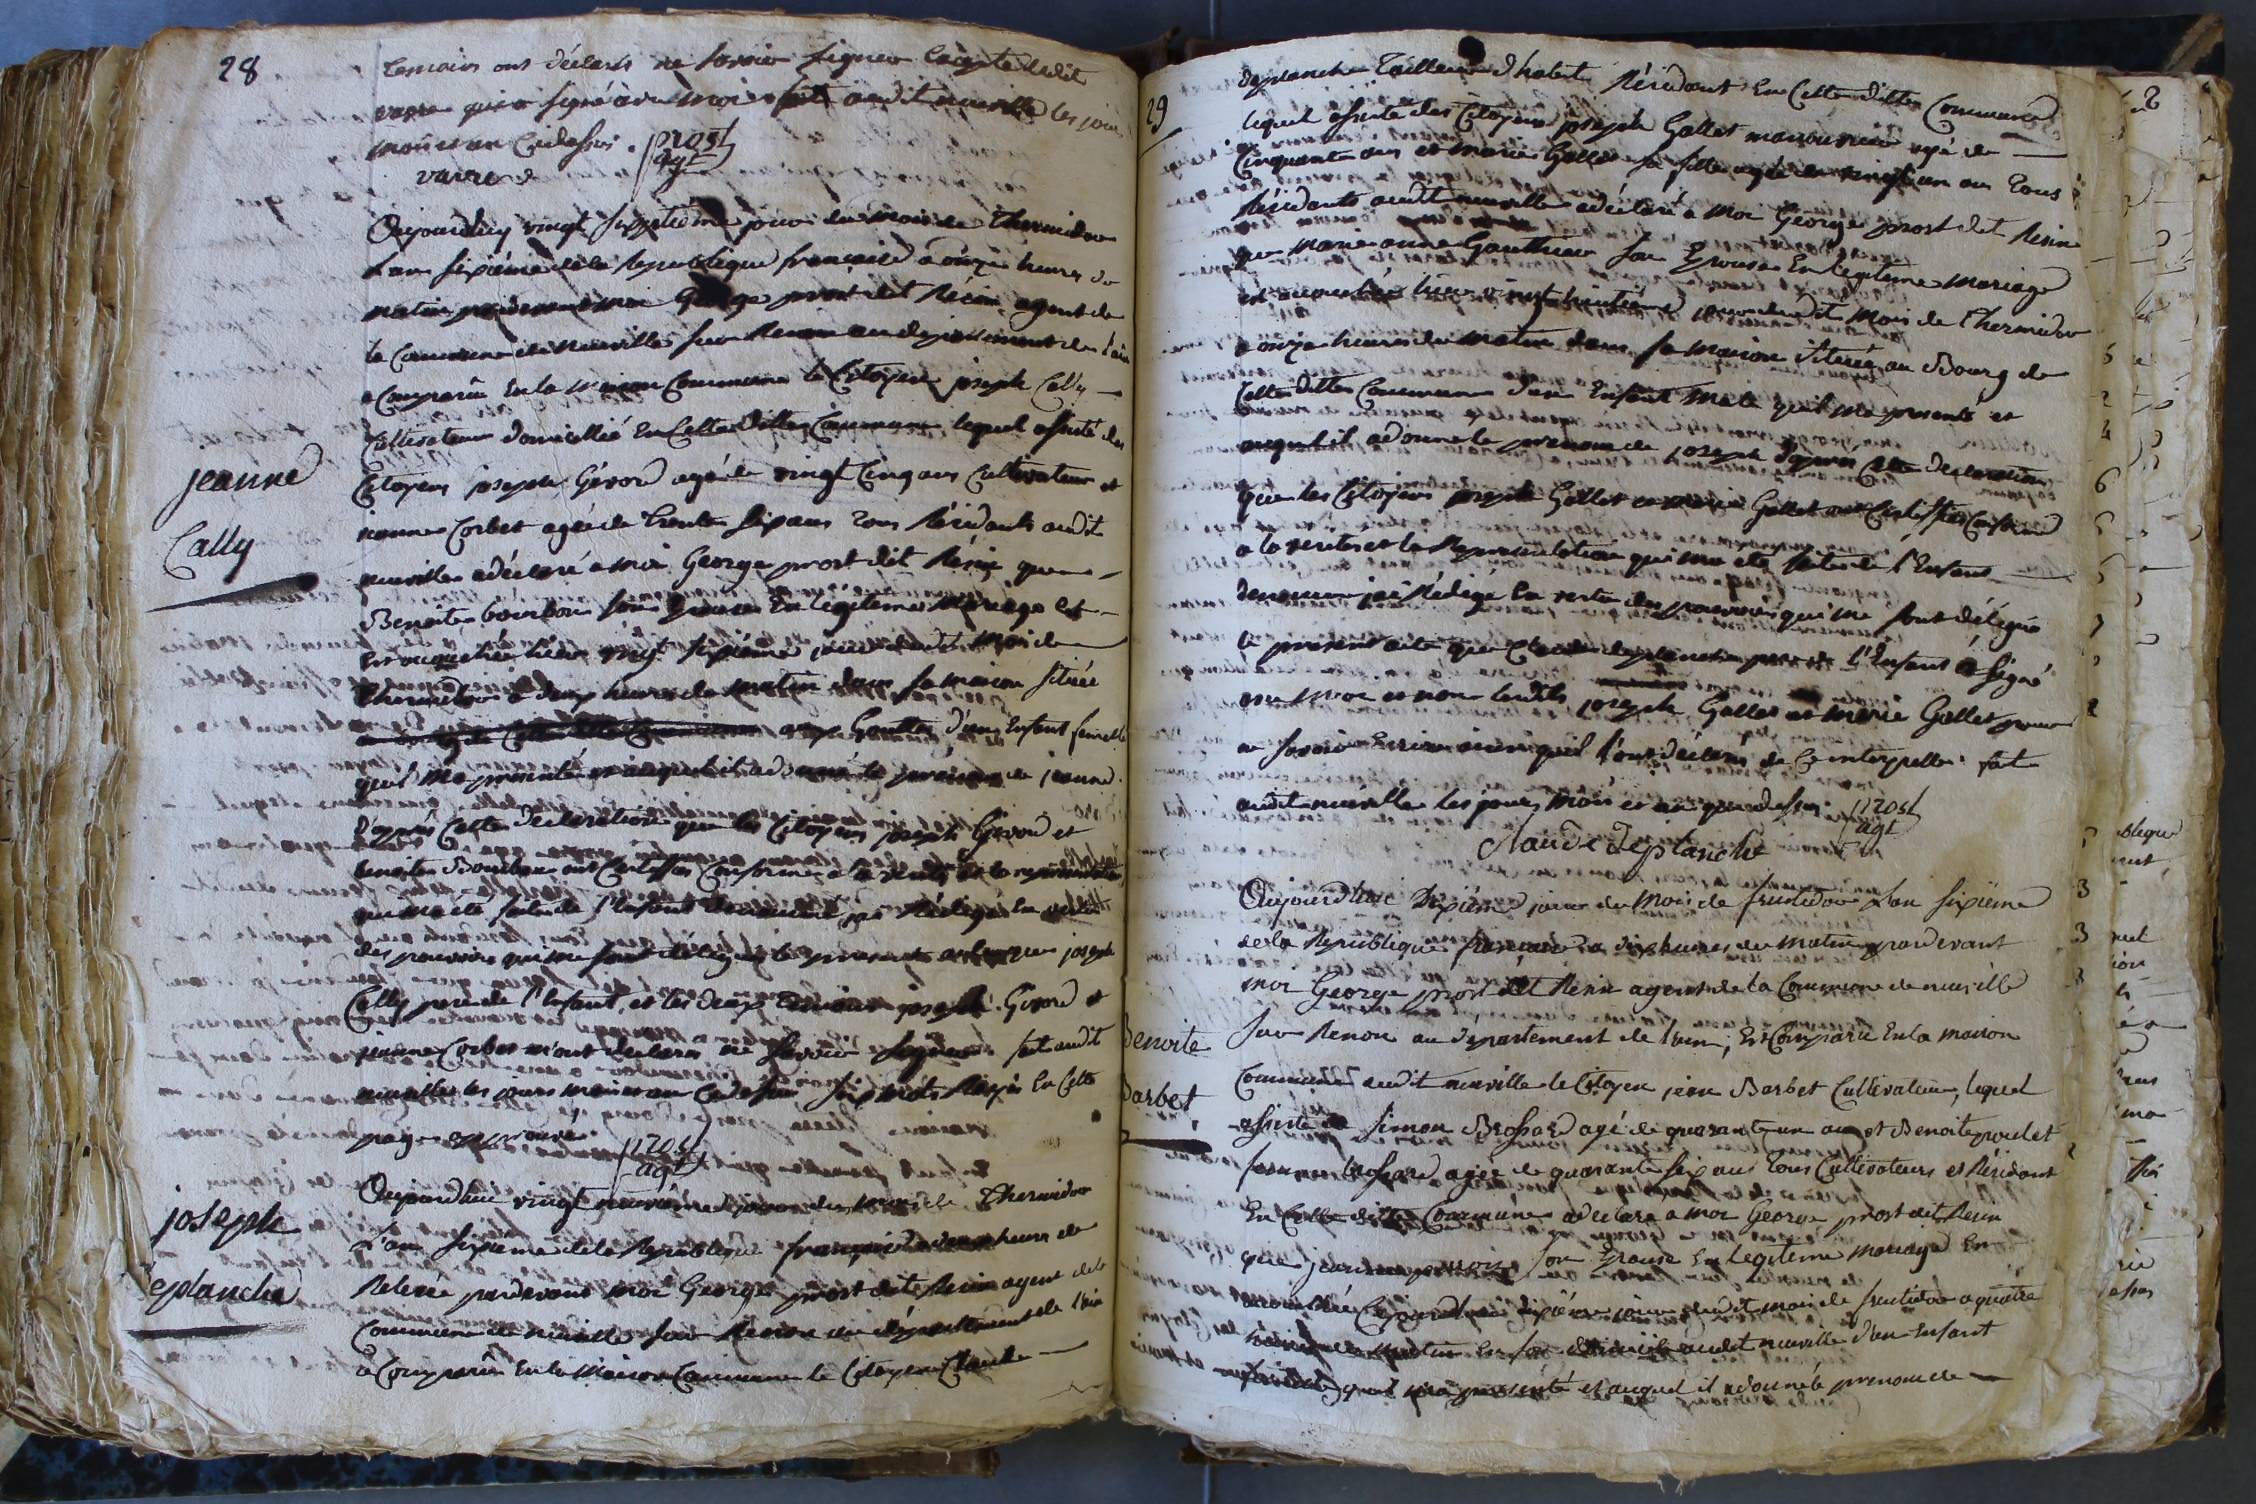 28
temoins ont déclarés ne savoir signer Excepté ledit
varre qui a signé avec moi fait audit neuville les jour
mois et an cidessus . prost
varre agt
Aujourduy vingt septieme jour du mois de Thermidor
l'an sixiéme de la Republique française a onze heures du
matin pardevant moi George prost dit Résin agent de
la Commune de Neuville sur Renon au departement de l'ain
a Comparu En la Maison Commune le Citoyen joseph Cally
Cultivateur domicillié En Cette ditte Commune lequel assisté des
jeanne
Cally
Citoyens joseph Girord agé de vingt Cinq ans Cultivateur et
jeanne Corbet agée de trente six ans tous Résidants audit
neuville a déclaré a moi George prost dit Résin que
Benoite bourbon son Epouse En legitime Mariage est
Est accouchée hier vingt sixiéme jour dudit mois de
Thermidor a deux heures du matin dans sa maison située
aux Gouttes d'un Enfant femelle
quil ma presenté et auquel il a donné le prénom de jeanne.
d'apprès Cette declaration que les Citoyens joseph Girord et
benoite Bourbon ont Certiffiés Conforme a la verité et la representation
qui ma été faite de l'Enfant denommé jai Rédigé En vertu
des pouvoirs qui me sont délégués le present acte que joseph
Cally pere de l'Enfant, et les deux temoins joseph Girord et
jeanne Corbet m'ont declarés ne savoir signer fait audit
neuville les jours mois et an Cidessus six mots Rayés En Cette
page approuvé. prost
agt
joseph
éplanche
Aujourdhui vingt neuviéme jour du mois de Thermidor
L'an sixieme de la Republique française a heure de
Relevée pardevant moi George prost dit Resin agent de la
Commune de neuville sur Renon au département de l'ain
a Comparu En la Maison Commune le Citoyen Claude
29
deplanche Tailleur d'habits Résidant En Cette ditte Commune
lequel assisté des Citoyens joseph Gallet manouvrier agé de
Cinquante ans et marie Gallet sa fille agée de vingt un an tous
Résidants audit neuville a déclaré a moi George prost dit Resin
que Marie anne Gauthier son Epouse En legitime Mariage
est accouchée hier vingt huitiéme jour dudit Mois de Thermidor
a onze heures du matin dans sa maison située au Bourg de
Cette ditte Commune d'un Enfant Male quil ma presenté et
auquel il a donné le prenom de joseph d'après Cette déclaration
que les Citoyens joseph Gallet et marie Gallet ont Certiffiés Conforme
a la verité et la Representation qui ma eté faite de l'Enfant
denommé jai Rédigé En vertu des pouvoirs qui me sont délégués
le present acte que Claude deplanche pere de l'Enfant a signé
avec Moi et non lesdits joseph Gallet et Marie Gallet pour
ne savoir Ecrire ainsi quil l'ont déclarés de Ce interpellés . fait
audit neuville les jours, mois et an que dessus prost
agt
Claude deplanche
Aujourdhui dixiéme jour du Mois de fructidor l'an sixiéme
de la Republique française a dix heures du matin, pardevant
moi George prost dit Resin agent de la Commune de neuville
Benoite
Barbet
sur Renon au département de l'ain; Est Comparu En la maison
Commune audit neuville le Citoyen jean Barbet Cultivateur, lequel
assisté de simon Brossard agé de quarante un an et Benoite poulet
femme brossard agée de quarante six ans tous Cultivateurs et Résidant
En Cette ditte Commune a déclaré a moi George prost dit Resin
que jeanne son Epouse En legitime mariage En
accouchée Cejourdhui dixiéme jour dudit mois de fructidor a quatre
heures du matin En son domicile audit neuville d'un Enfant
femelle quil ma presenté et auquel il a donné le prenom de